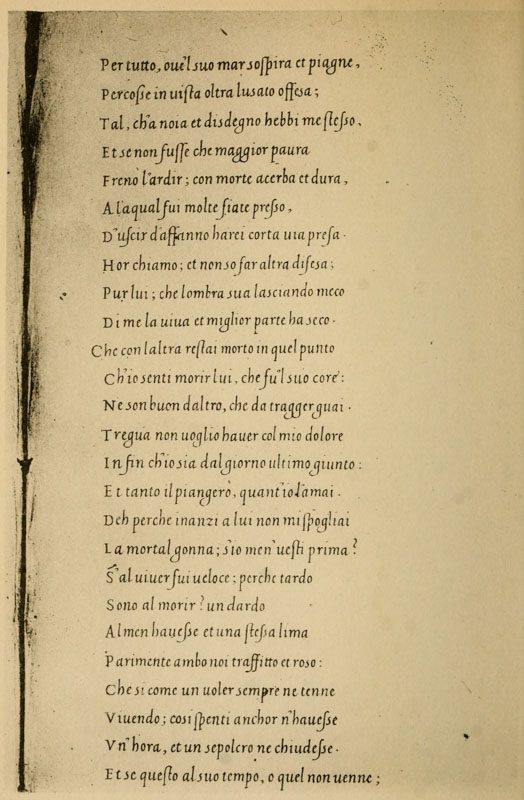 Per tutto, oue'l suo mar sospira et piagne,
Percosse in uista oltra lusato offesa;
Tal, ch'a noia et disdegno hebbi me stesso,
Et se non fusse che maggior paura
Freno l'ardir; con morte acerba et dura,
A laqual fui molte fiate presso,
D'uscir d'affanno harei corta uia presa.
Hor chiamo; et non so far altra difesa;
Pur lui; che lombra sua lasciando meco
Di me la uiua et miglior parte ha seco.
Che con laltra restai morto in quel punto
Ch'io senti morir lui, che fu'l suo core:
Ne son buon daltro, che da tragger guai.
Tregua non uoglio hauer col mio dolore
Infin ch'io sia dal giorno ultimo giunto:
Et tanto il piangerò, quant'io l'amai.
Deh perche inanzi a lui non mi spogliai
La mortal gonna; s'io men'uesti prima?
S'al uiuer fui ueloce; perche tardo
Sono al morir? un dardo
Almen hauesse et una stessa lima
Parimente ambo noi traffitto et roso:
Che si come un uoler sempre ne tenne
Viuendo; cosi spenti anchor n'hauesse
Vn'hora, et un sepolcro ne chiudesse.
Et se questo al suo tempo, o quel non uenne;